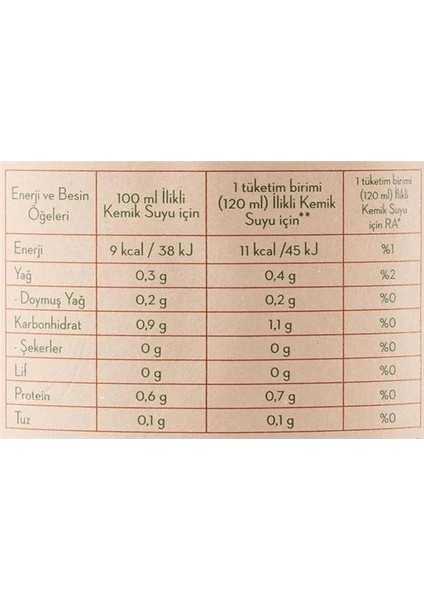 Enerji ve Besin Öğeleri | 100 ml İlikli Kemik Suyu için | 1 tüketim birimi (120 ml) İlikli Kemik Suyu için** | 1 tüketim birimi (120 ml) İlikli Kemik Suyu için RA*
Enerji | 9 kcal / 38 kJ | 11 kcal /45 kJ | %1
Yağ | 0,3 g | 0,4 g | %2
- Doymuş Yağ | 0,2 g | 0,2 g | %0
Karbonhidrat | 0,9 g | 1,1 g | %0
- Şekerler | 0 g | 0 g | %0
Lif | 0 g | 0 g | %0
Protein | 0,6 g | 0,7 g | %0
Tuz | 0,1 g | 0,1 g | %0